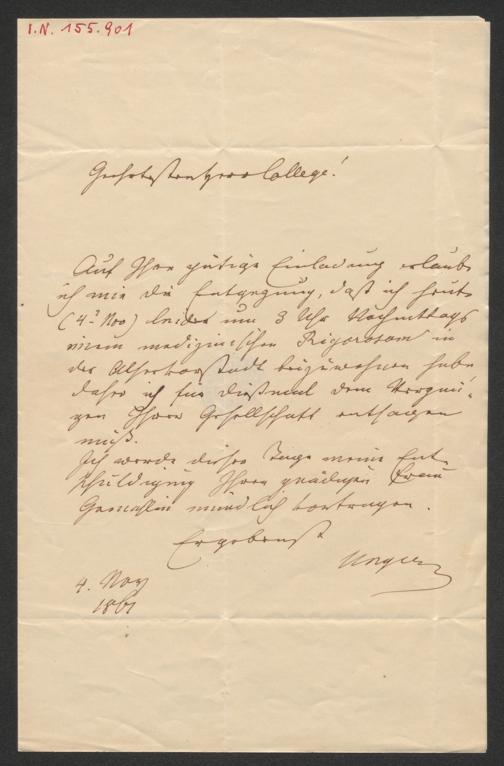 I.N. 155.901
Geehrtester Herr College!
Auf Ihre gütige Einladung erlaube
ich mir die Entgegnung, daß ich heute
(4t Nov) leider um 3 Uhr Nachmittags
einem medizinischen Rigorosum in
der Alservorstadt beizuwohnen habe
daher ich für dießmal dem Vergnü-
gen Ihrer Gesellschaft entsagen
muß.
Ich werde dieser Tage meine Ent-
schuldigung Ihrer gnädigen Frau
Gemahlin mündlich vortragen.
Ergebenst
Unger
4. Nov
1861